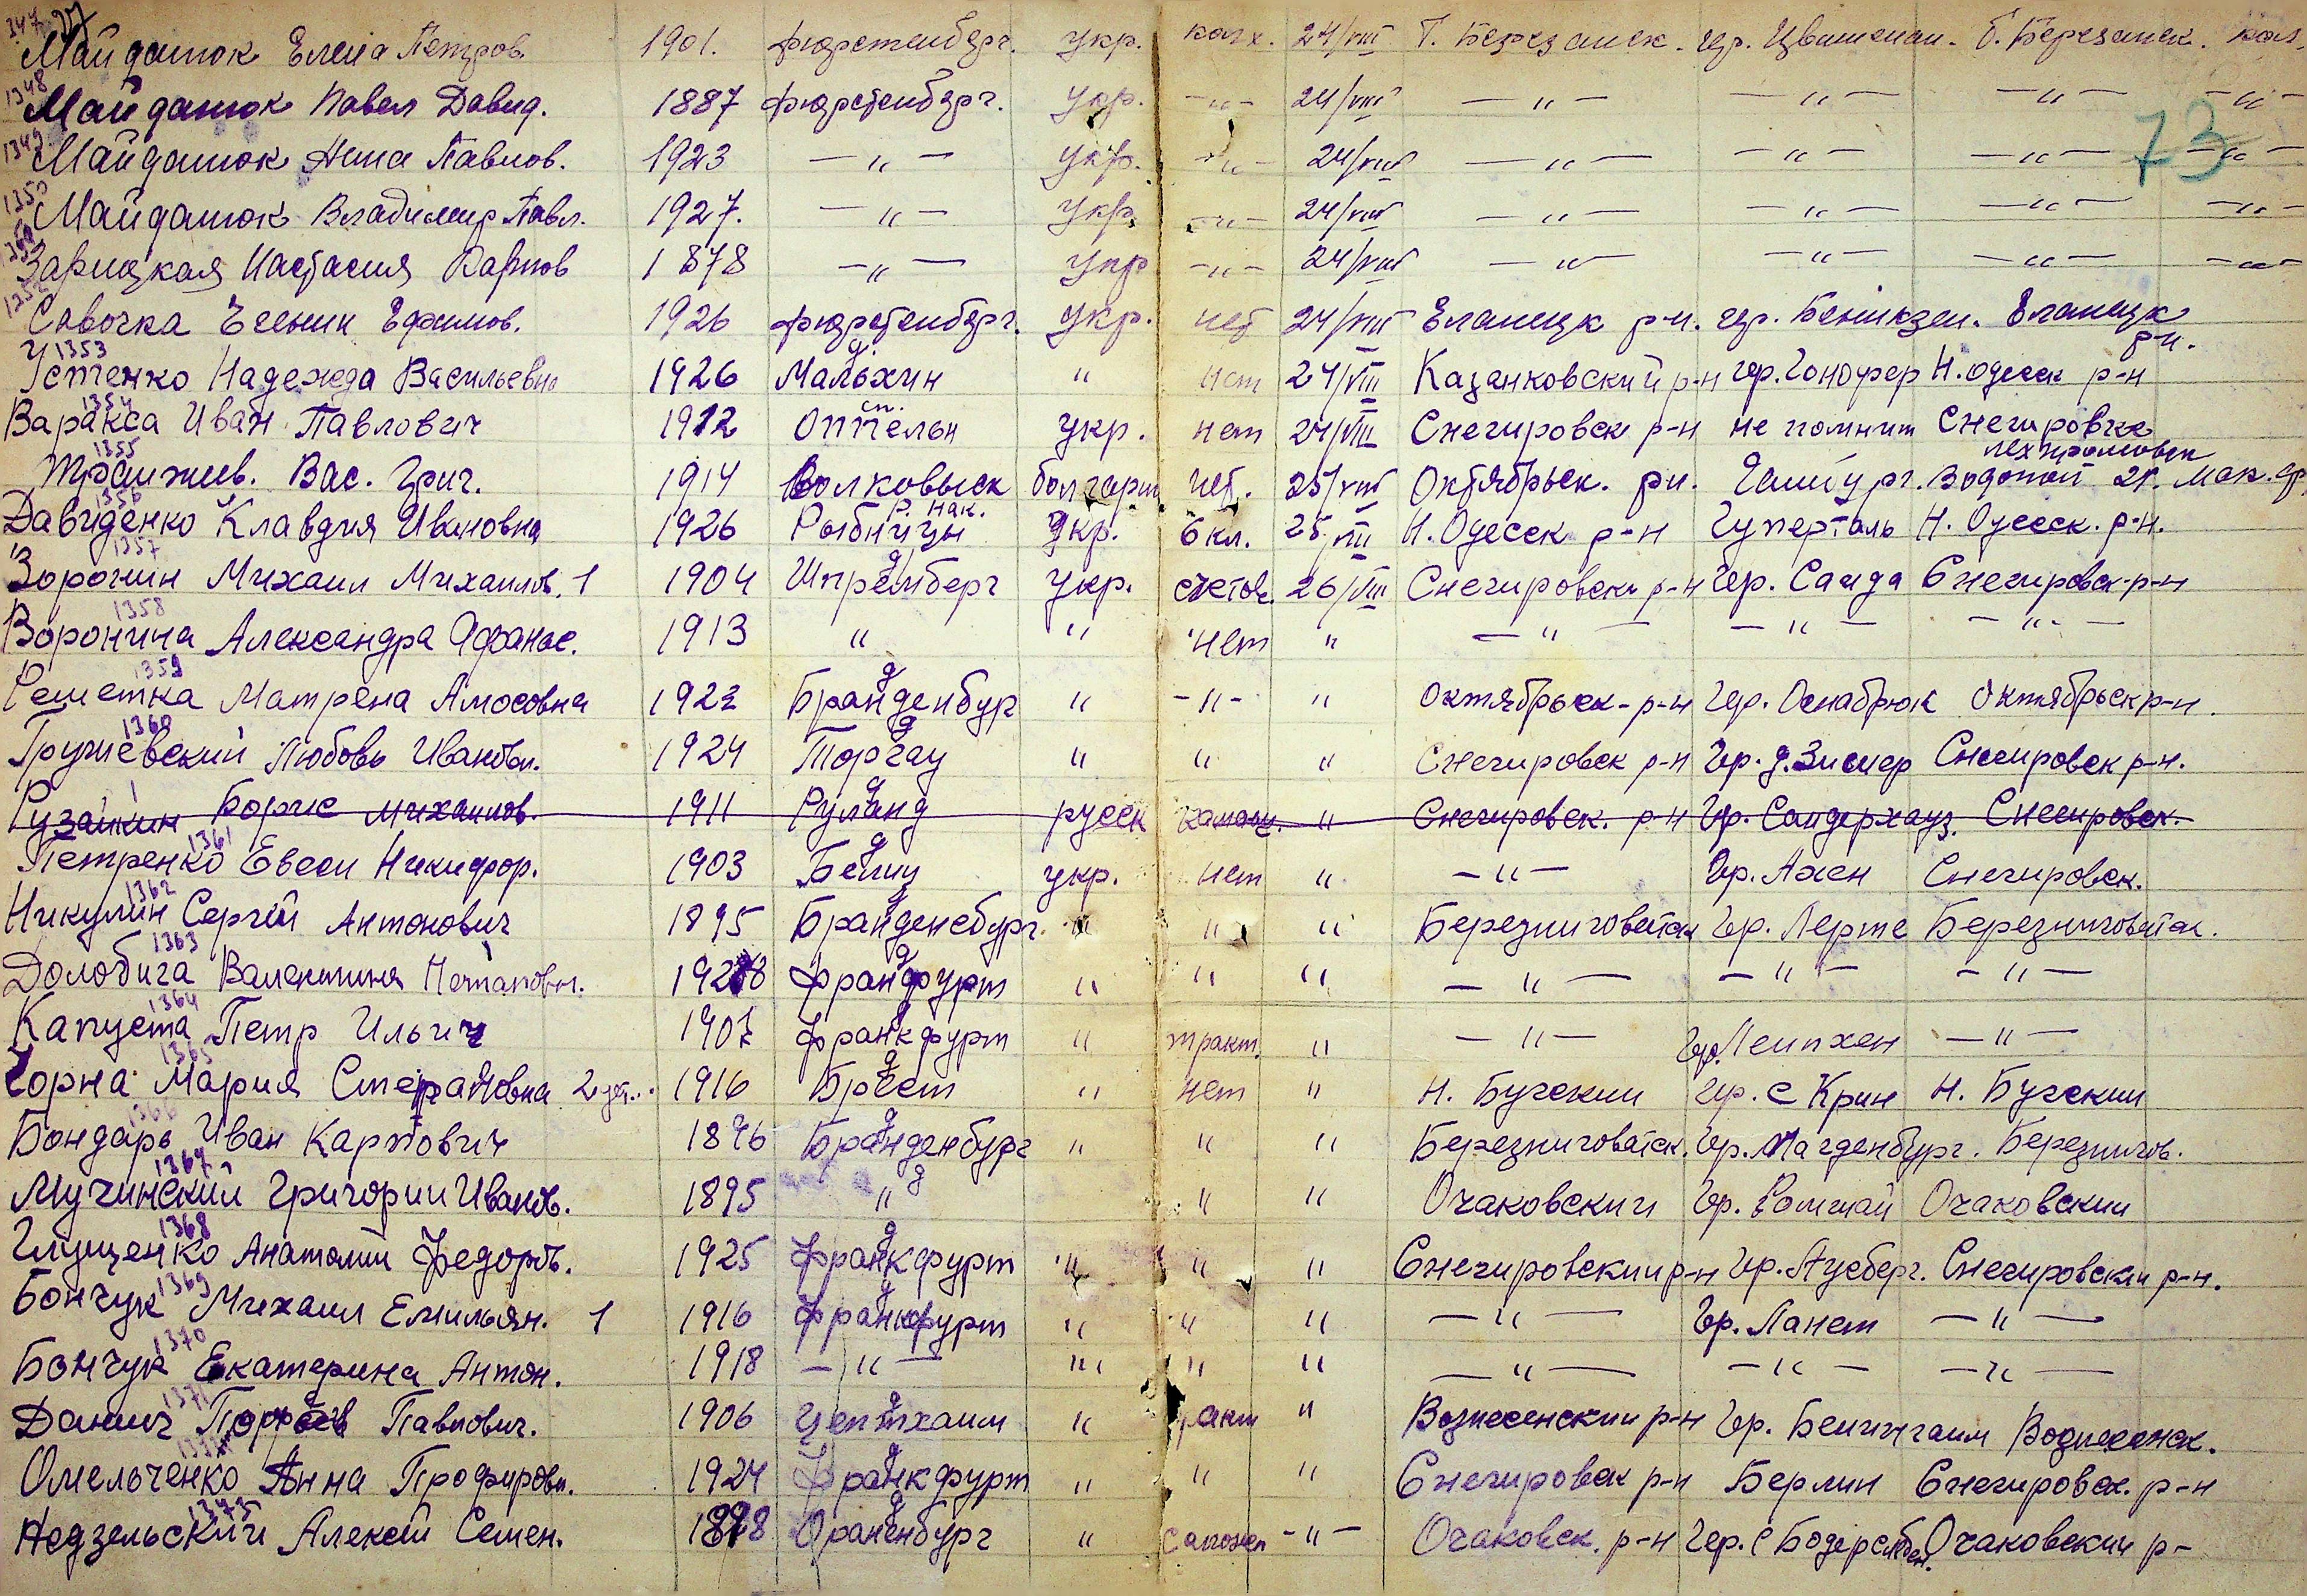 1347 Майданюк Елена Петров. 1901. Фюрстенберг. укр. колх. 24/VIII Т. Березанск. гер. Б. Березанск.
73
1348 Майданюк Павел Давид. 1887 Фюрстенберг. укр. —"— 24/VIII —"— —"— —"— —"—
1349 Майданюк Нина Павлов. 1923 —"— укр. —"— 24/VIII —"— —"— —"— —"—
1350 Майданюк Владимир Павл. 1927. —"— укр. —"— 24/VIII —"— —"— —"— —"—
1351 Зарицкая Настасия Карпов 1878 —"— укр —"— 24/VIII —"— —"— —"— —"—
1352 Савочка Ефимов. 1926 Фюрстенберг. укр. нет 24/VIII Еланецк р-н. гер. Еланецк р-н.
1353 Устенко Надежда Васильевна 1926 д. Мальхин " нет 24/VIII Казанковский р-н гер. Н. Одесск р-н
1354 Варакса Иван Павлович 1912 ст. Оппельн укр. нет 24/VIII Снегировск р-н не помнит Снегировке
1355 Вас. Григ. 1914 Волковыск болгарин нет. 25/VIII Октябрьск. р-н. Водопой 21.
1356 Давиденко Клавдия Ивановна 1926 Р. нак. Рыбницы укр. 6 кл. 25/VIII Н. Одесск р-н Гуперталь Н. Одесск. р-н.
1357 Воронин Михаил Михаилов. 1 1904 д Шпремберг укр. счетов. 26/VIII Снегировски р-н Гер. Саида Снегировск р-н
1358 Воронина Александра Афанас. 1913 " " нет " —"— —"— —"—
1359 Решетка Матрена Амосовна 1922 д Бранденбург " —"— " Октябрьск-р-н Гер. Оснабрюк Октябрьск р-н.
1360 Гружевский Любовь Ивановн. 1924 д Торгау " " " Снегировск р-н Гер. д. Зимер Снегировск р-н.
Рузайкин Борис Михаилов. 1911 д Руланд русск " Снегировск. р-н Гер. Сандерхауз. Снегировск.
1361 Петренко Евсеи Никифор. 1903 д Белиц укр. нет " —"— Гр. Ахен Снегировск.
1362 Никулин Сергей Антонович 1895 д Бранденебург. " " " Березниговатск Гр. Лерте Березниговатск.
1363 Долобига Валентина Потаповн. 1928 д Франфурт " " " —"— —"— —"—
1364 Капуста Петр Ильич 1907 д Франкфурт " тракт. " —"— Гер. Леипхен —"—
1365 Чорна Мария Степановна 2 дет.. 1916 д Брест " нет " Н. Бугскии гер. с Крин Н. Бугскии
1366 Бондарь Иван Карпович 1896 д Бранденбург " " " Березниговатск. Гр. Магденбург. Березнигов.
1367 Мучинский Григории Иванов. 1895 " д " " Очаковскии Гр. Очаковскии
1368 Глущенко Анатолии Федоров. 1925 д Франкфурт " " " Снегировскии р-н Гр. Аусберг. Снегировскии р-н.
1369 Бончук Михаил Емильян. 1 1916 д Франкфурт " " " —"— Гр. Ланет —"—
1370 Бончук Екатерина Антон. 1918 —"— " " " —"— —"— —"—
1371 Данич Павлович. 1906 д Цептхаим " тракт " Вознесенскии р-н Гр. Вознесенск.
1372 Омельченко Анна Профировн. 1924 д Франкфурт " " " Снегировск р-н Берлин Снегировск. р-н
1373 Недзельский Алексей Семен. 1898 д Ораненбург " сапожн —"— Очаковск. р-н Гер. с Очаковскии р-